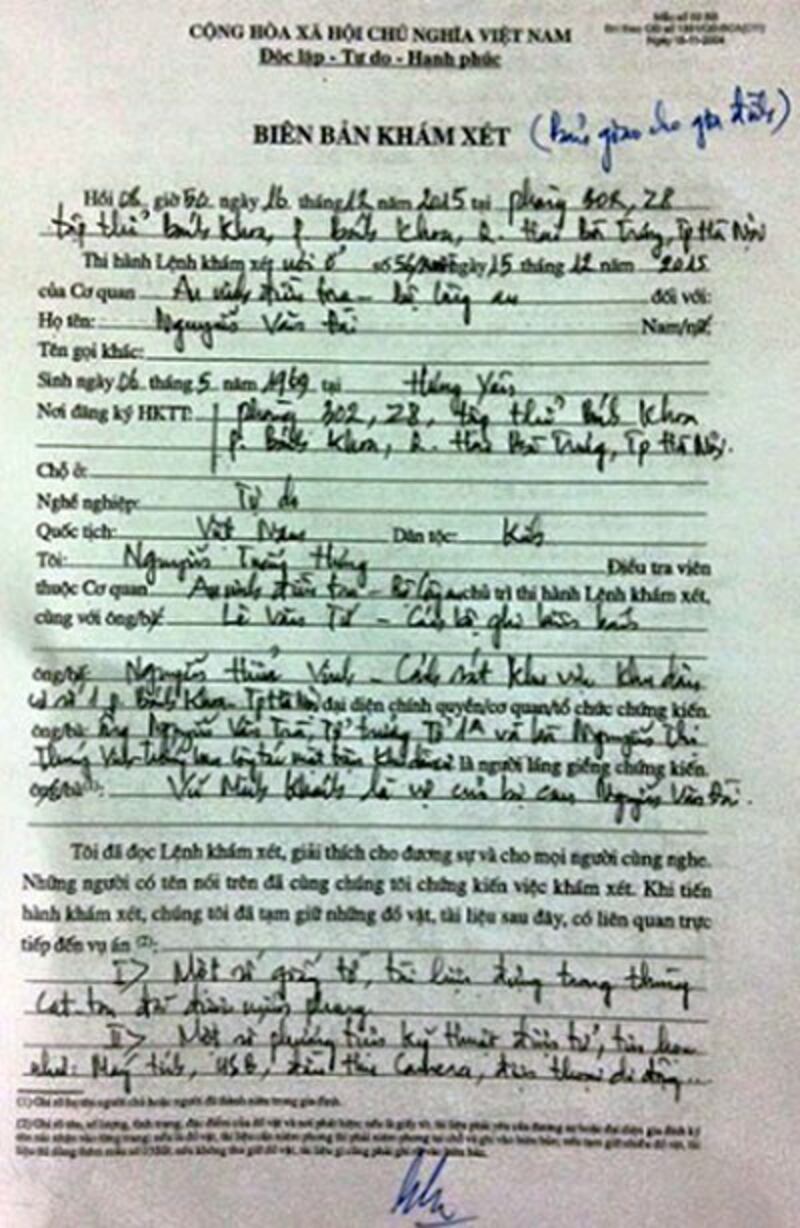 CỘNG HÒA XÃ HỘI CHỦ NGHĨA VIỆT NAM
Độc lập - Tự do - Hạnh phúc
Ngày 18-11-2004
BIÊN BẢN KHÁM XÉT (Bản giao cho gia đình)
Hồi 08 giờ 50 ngày 16 tháng 12 năm 2015 tại phòng 302, Z8
tập thể Bách Khoa, p. Bách Khoa, q. Hai Bà Trưng, Tp Hà Nội
Thi hành Lệnh khám xét nơi ở số ngày 15 tháng 12 năm 2015
của Cơ quan An ninh điều tra - Bộ Công an đối với:
Họ tên: Nguyễn Văn Đài Nam/nữ:
Tên gọi khác:
Sinh ngày 06 tháng 5 năm 1969 tại Hưng Yên
Nơi đăng ký HKTT: phòng 302, Z8, tập thể Bách Khoa
p. Bách Khoa, q. Hai Bà Trưng, Tp Hà Nội.
Chỗ ở:
Nghề nghiệp: Tự do
Quốc tịch: Việt Nam Dân tộc: Kinh
Tôi: Nguyễn Trọng Điều tra viên
thuộc Cơ quan An ninh điều tra - Bộ Công an chủ trì thi hành Lệnh khám xét,
cùng với ông/bà: Lê Văn Tú - Cán bộ ghi biên bản
ông/bà: Nguyễn Vinh - Cảnh sát khu vực khu dân
cư số 1 p. Bách Khoa - Tp Hà Nội đại diện chính quyền/cơ quan/tổ chức chứng kiến.
ông/bà: Ông Nguyễn Văn Trà, Tổ trưởng Tổ 1A và bà Nguyễn Thị
công tác mặt trận khu dân cư là người láng giềng chứng kiến.
ông/bà(1): Vũ Minh Khánh là vợ của bị can Nguyễn Văn Đài.
Tôi đã đọc Lệnh khám xét, giải thích cho đương sự và cho mọi người cùng nghe.
Những người có tên nói trên đã cùng chúng tôi chứng kiến việc khám xét. Khi tiến
hành khám xét, chúng tôi đã tạm giữ những đồ vật, tài liệu sau đây, có liên quan trực
tiếp đến vụ án (2):
I> Một số giấy tờ, tài liệu đựng trong thùng
cat-ton đã được niêm phong
II> Một số phương tiện kỹ thuật điện tử, tin học
như: Máy tính, USB, Camera, điện thoại di động...
(1) Ghi rõ họ tên người chủ hoặc người đã thành niên trong gia đình.